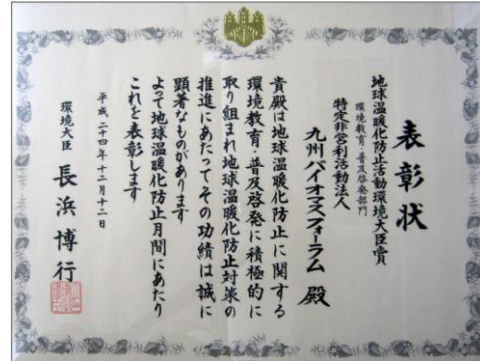 表彰状
地球温暖化防止活動環境大臣賞
環境教育・普及啓発部門
特定非営利活動法人
九州バイオマスフォーラム 殿
貴殿は地球温暖化防止に関する
環境教育・普及啓発に積極的に
取り組まれ地球温暖化防止対策の
推進にあたってその功績は誠に
顕著なものがあります
よって地球温暖化防止月間にあたり
これを表彰します
平成二十四年十二月十二日
環境大臣 長浜博行